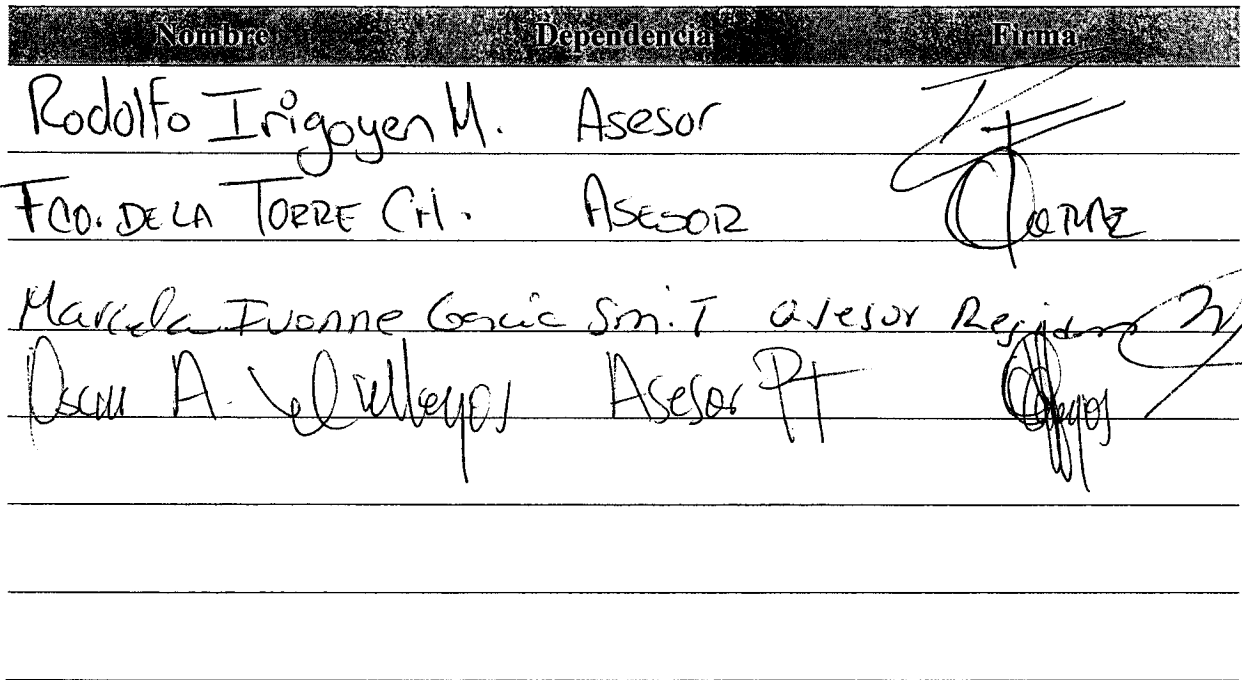 Nombre Dependencia Firma
Rodolfo Irigoyen M. Asesor
Fco. DE LA TORRE CH. ASESOR TORRE
Marcela Ivonne Garcia Smit asesor
Oscar A. Asesor PT